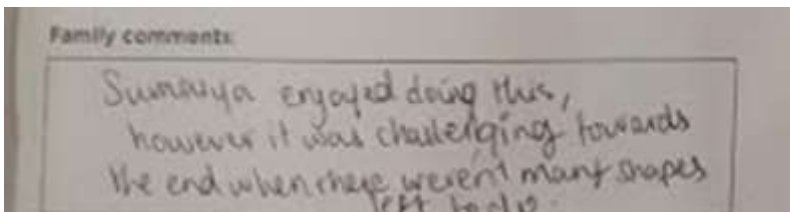 Family comments:
Sumaiya enjoyed doing this,
however it was challenging towards
the end when there weren't many shapes
left to